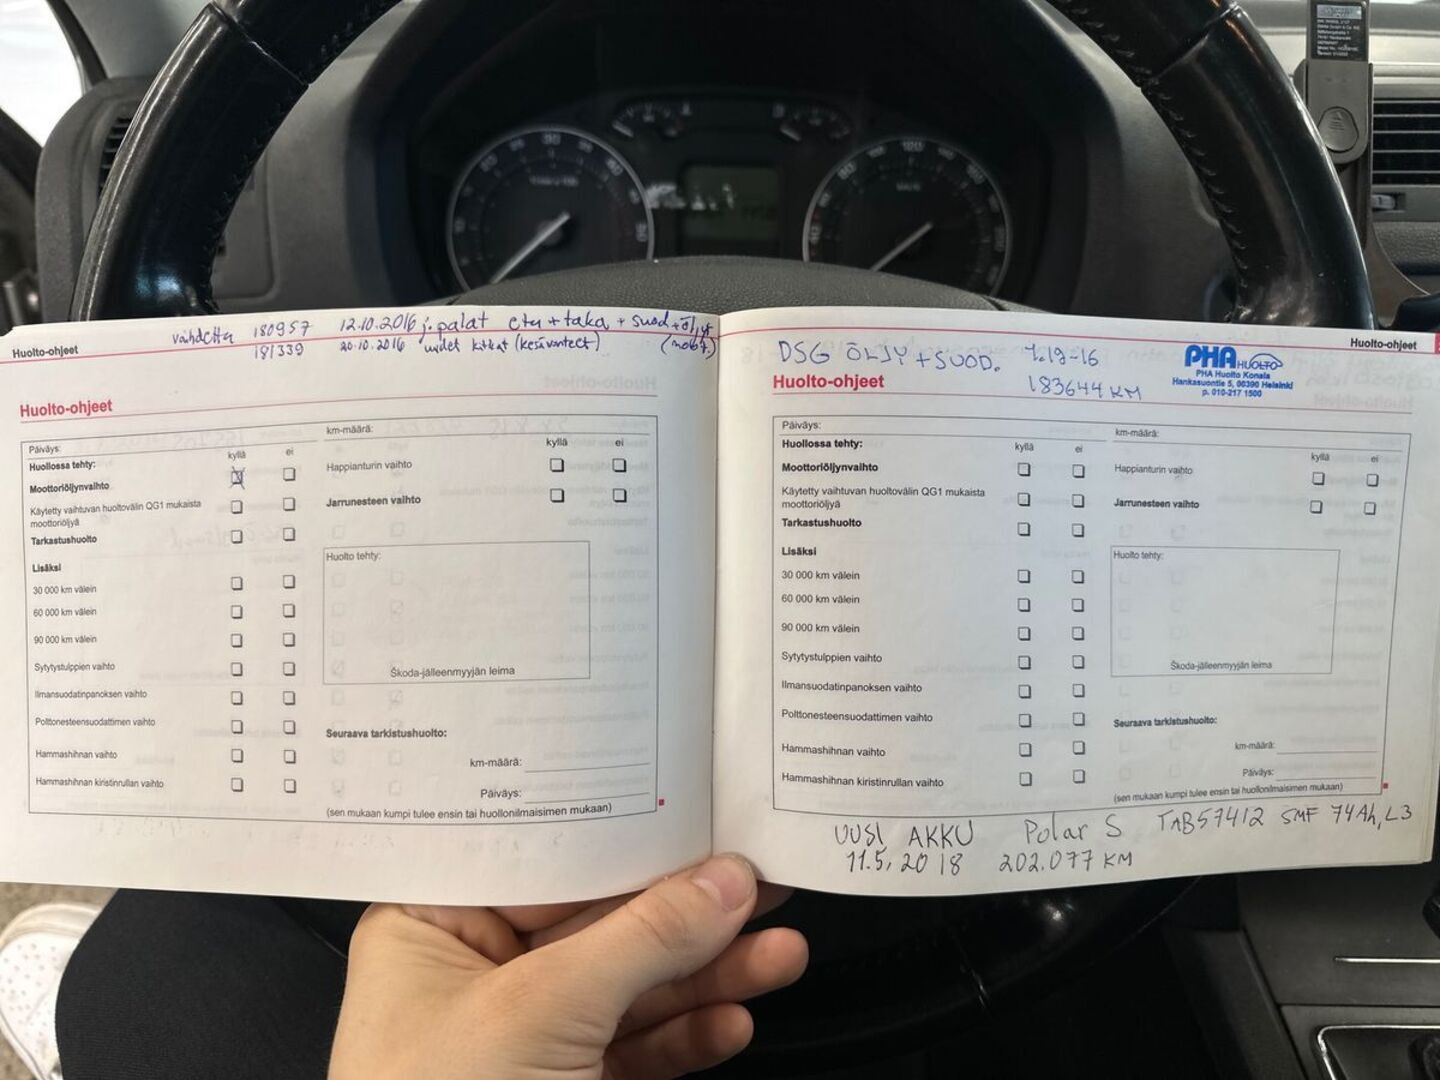 vaihdettu 180957 12.10.2016 j.palat etu + taka + suod + öljyt
181339 20.10.2016 uudet kitkat (kesävanteet) (moot.)
Huolto-ohjeet
Huolto-ohjeet
Päiväys:
km-määrä:
Huollossa tehty:
kyllä ei
kyllä ei
Moottoriöljynvaihto
Happianturin vaihto
Käytetty vaihtuvan huoltovälin QG1 mukaista
moottoriöljyä
Jarrunesteen vaihto
Tarkastushuolto
Lisäksi
Huolto tehty:
30 000 km välein
60 000 km välein
90 000 km välein
Sytytystulppien vaihto
Škoda-jälleenmyyjän leima
Ilmansuodatinpanoksen vaihto
Polttonesteensuodattimen vaihto
Seuraava tarkistushuolto:
Hammashihnan vaihto
km-määrä:
Hammashihnan kiristinrullan vaihto
Päiväys:
(sen mukaan kumpi tulee ensin tai huollonilmaisimen mukaan)
Huolto-ohjeet
DSG ÖLJY + SUOD.
183644 KM
PHA HUOLTO
PHA Huolto Konala
Hankasuontie 5, 00390 Helsinki
p. 010-217 1500
Huolto-ohjeet
Päiväys:
km-määrä:
Huollossa tehty:
kyllä ei
kyllä ei
Moottoriöljynvaihto
Happianturin vaihto
Käytetty vaihtuvan huoltovälin QG1 mukaista
moottoriöljyä
Jarrunesteen vaihto
Tarkastushuolto
Lisäksi
Huolto tehty:
30 000 km välein
60 000 km välein
90 000 km välein
Sytytystulppien vaihto
Škoda-jälleenmyyjän leima
Ilmansuodatinpanoksen vaihto
Polttonesteensuodattimen vaihto
Seuraava tarkistushuolto:
Hammashihnan vaihto
km-määrä:
Hammashihnan kiristinrullan vaihto
Päiväys:
(sen mukaan kumpi tulee ensin tai huollonilmaisimen mukaan)
UUSI AKKU Polar S TAB57412 SMF 74Ah, L3
11.5.2018 202.077 KM